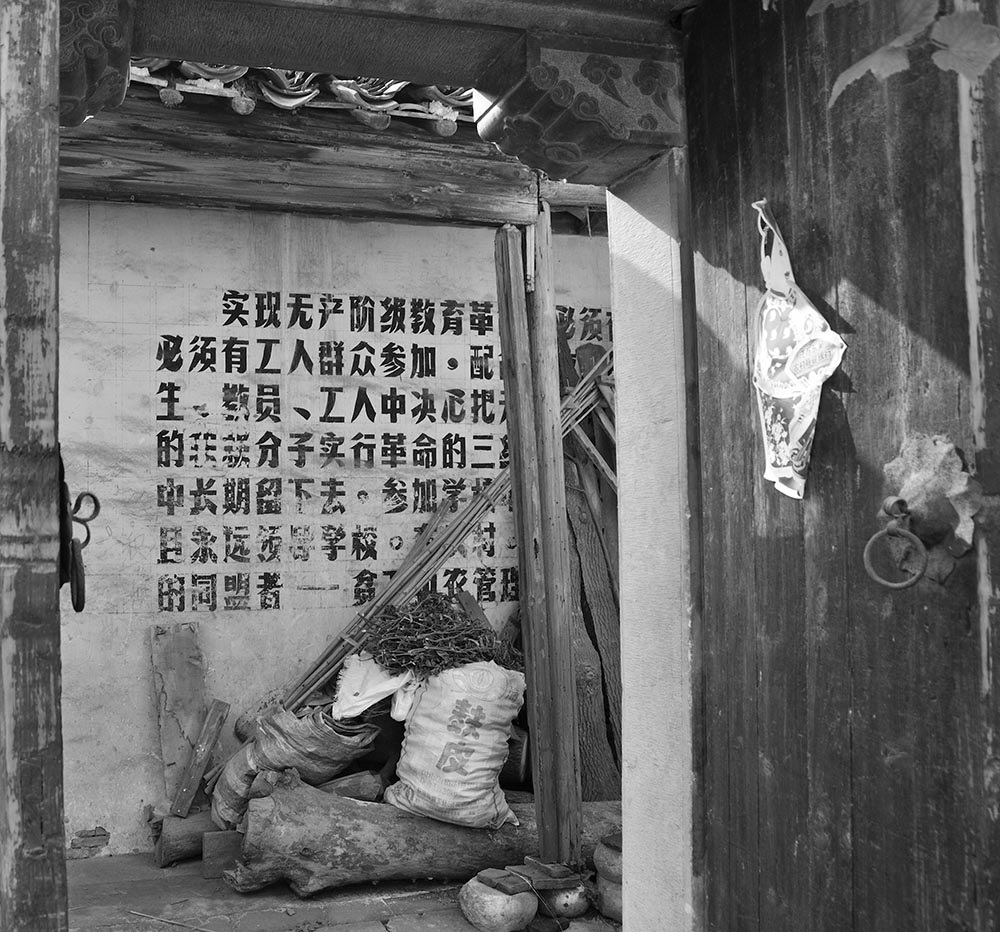 实现无产阶级教育革 必须
必须有工人群众参加。配
生、教员、工人中决心把
的积极分子实行革命的三结
中长期留下去。参加学校
且永远领导学校。农村
的同盟者—贫下中农管理
麸皮